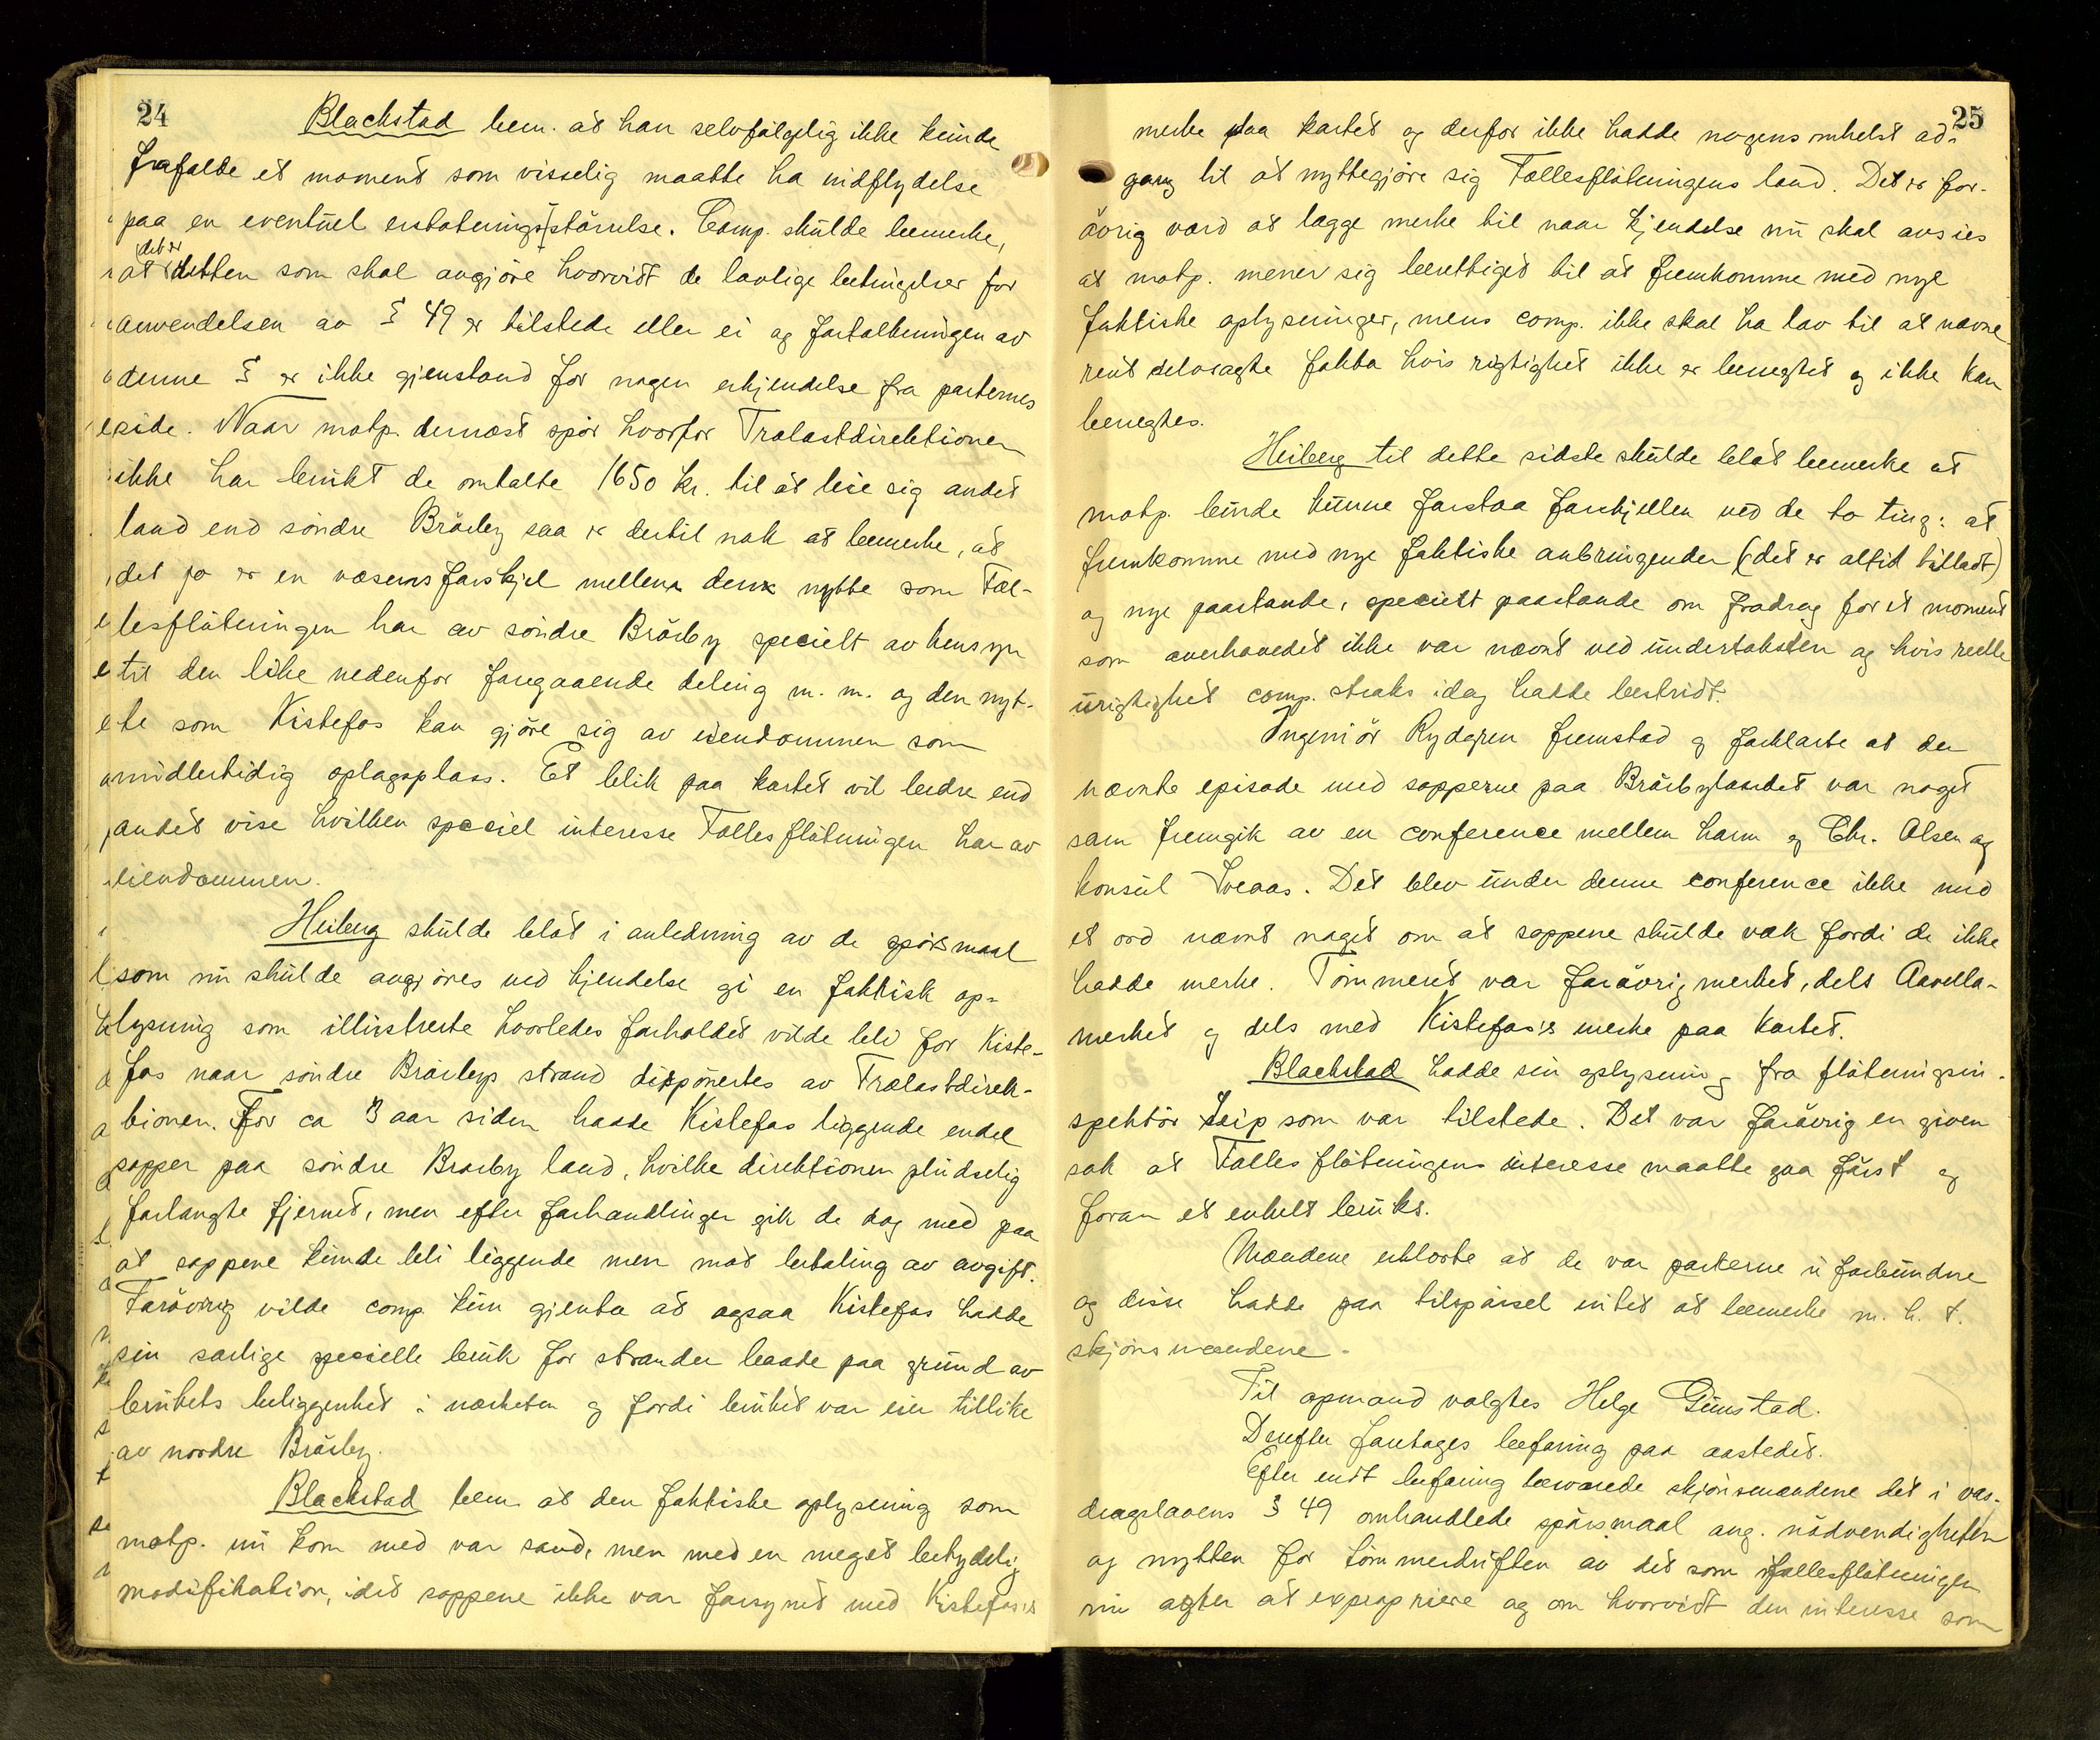 24
Blackstad bem. at han selvfølgelig ikke kunde
frafalde et moment som visselig maatte ha indflydelse
paa en eventuel erstatningsstørrelse. Comp. skulde bemerke,
at det er retten som skal avgjøre hvorvidt de lovlige betingelser for
anvendelsen av § 49 er tilstede eller ei og fortolkningen av
denne § er ikke gjenstand for nogen erkjendelse fra parternes
side. Naar motp. dernæst spør hvorfor Trælastdirektionen
ikke har brukt de omtalte 1650 kr. til at leie sig andet
land end søndre Brårby saa er dertil nok at bemerke, at
det jo er en væsensforskjel mellem den nytte som Fæl-
lesfløtningen har av søndre Brårby specielt av hensyn
til den like nedenfor foregaaende deling m. m. og den nyt-
te som Kistefos kan gjøre sig av eiendommen som
midlertidig oplagsplass. Et blik paa kartet vil bedre end
andet vise hvilken speciel interesse Fællesfløtningen har av
eiendommen.
Heiberg skulde blot i anledning av de spørsmaal
som nu skulde avgjøres ved kjendelse gi en faktisk op-
lysning som illustrerte hvorledes forholdet vilde bli for Kiste-
fos naar søndre Brårbys strand disponertes av Trælastdirek-
tionen. For ca 3 aar siden hadde Kistefos liggende endel
sopper paa søndre Brårby land, hvilke direktionen pludselig
forlangte fjernet, men efter forhandlinger gik de dog med paa
at soppene kunde bli liggende men mot betaling av avgift.
Forøvrig vilde comp. kun gjenta at ogsaa Kistefos hadde
sin særlige specielle bruk for stranden baade paa grund av
brukets beliggenhet i nærheten og fordi bruket var eier tillike
av nordre Brårby.
Blackstad bem. at den faktiske oplysning som
motp. nu kom med var sand, men med en meget betydelig
modifikation, idet soppene ikke var forsynet med Kistefos's
25
merke paa kartet og derfor ikke hadde nogensomhelst ad-
gang til at nyttegjøre sig Fællesfløtningens land. Det er for-
øvrig værd at lægge merke til naar kjendelse nu skal avsies
at motp. mener sig berettiget til at fremkomme med nye
faktiske oplysninger, mens comp. ikke skal ha lov til at nævne
rent selvsagte fakta hvis rigtighet ikke er benegtet og ikke kan
benegtes.
Heiberg til dette sidste skulde blot bemerke at
motp. burde kunne forstaa forskjellen ved de to ting: at
fremkomme med nye faktiske anbringender (det er altid tilladt)
og nye paastande, specielt paastande om fradrag for et moment
som overhovedet ikke var nævnt ved undertaksten og hvis reelle
urigtighet comp. straks idag hadde bestridt.
Ingeniør Rydgren fremstod og forklarte at den
nævnte episode med sopperne paa Brårbylandet var noget
som fremgik av en conference mellem ham og Chr. Olsen og
konsul Sveaas. Det blev under denne conference ikke med
et ord nævnt noget om at soppene skulde væk fordi de ikke
hadde merke. Tømmeret var forøvrig merket, dels Aavella-
merket og dels med Kistefos's merke paa kartet.
Blackstad hadde sin oplysning fra fløtningsin-
spektør Seip som var tilstede. Det var forøvrig en given
sak at Fællesfløtningens interesse maatte gaa først og
foran et enkelt bruks.
Mændene erklærte at de var parterne uforbundne
og disse hadde paa tilspørsel intet at bemerke m. h. t.
skjønsmændene.
Til opmand valgtes Helge Gunstad.
Derefter foretoges befaring paa aastedet.
Efter endt befaring besvarede skjønsmændene det i vas-
dragslovens § 49 omhandlede spørsmaal ang. nødvendigheten
og nytten for tømmerdriften av det som Fællesfløtningen
nu agter at expropriere og om hvorvidt den interesse som